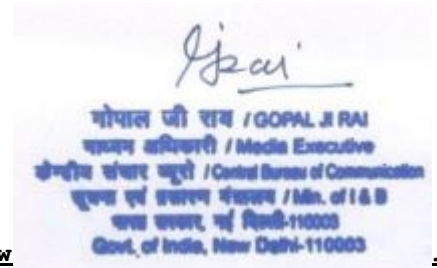 गोपाल जी राय / GOPAL JI RAI
माध्यम अधिकारी / Media Executive
केन्द्रीय संचार ब्यूरो / Central Bureau of Communication
सूचना एवं प्रसारण मंत्रालय / Min. of I & B
भारत सरकार, नई दिल्ली-110003
w Govt. of India, New Delhi-110003 .